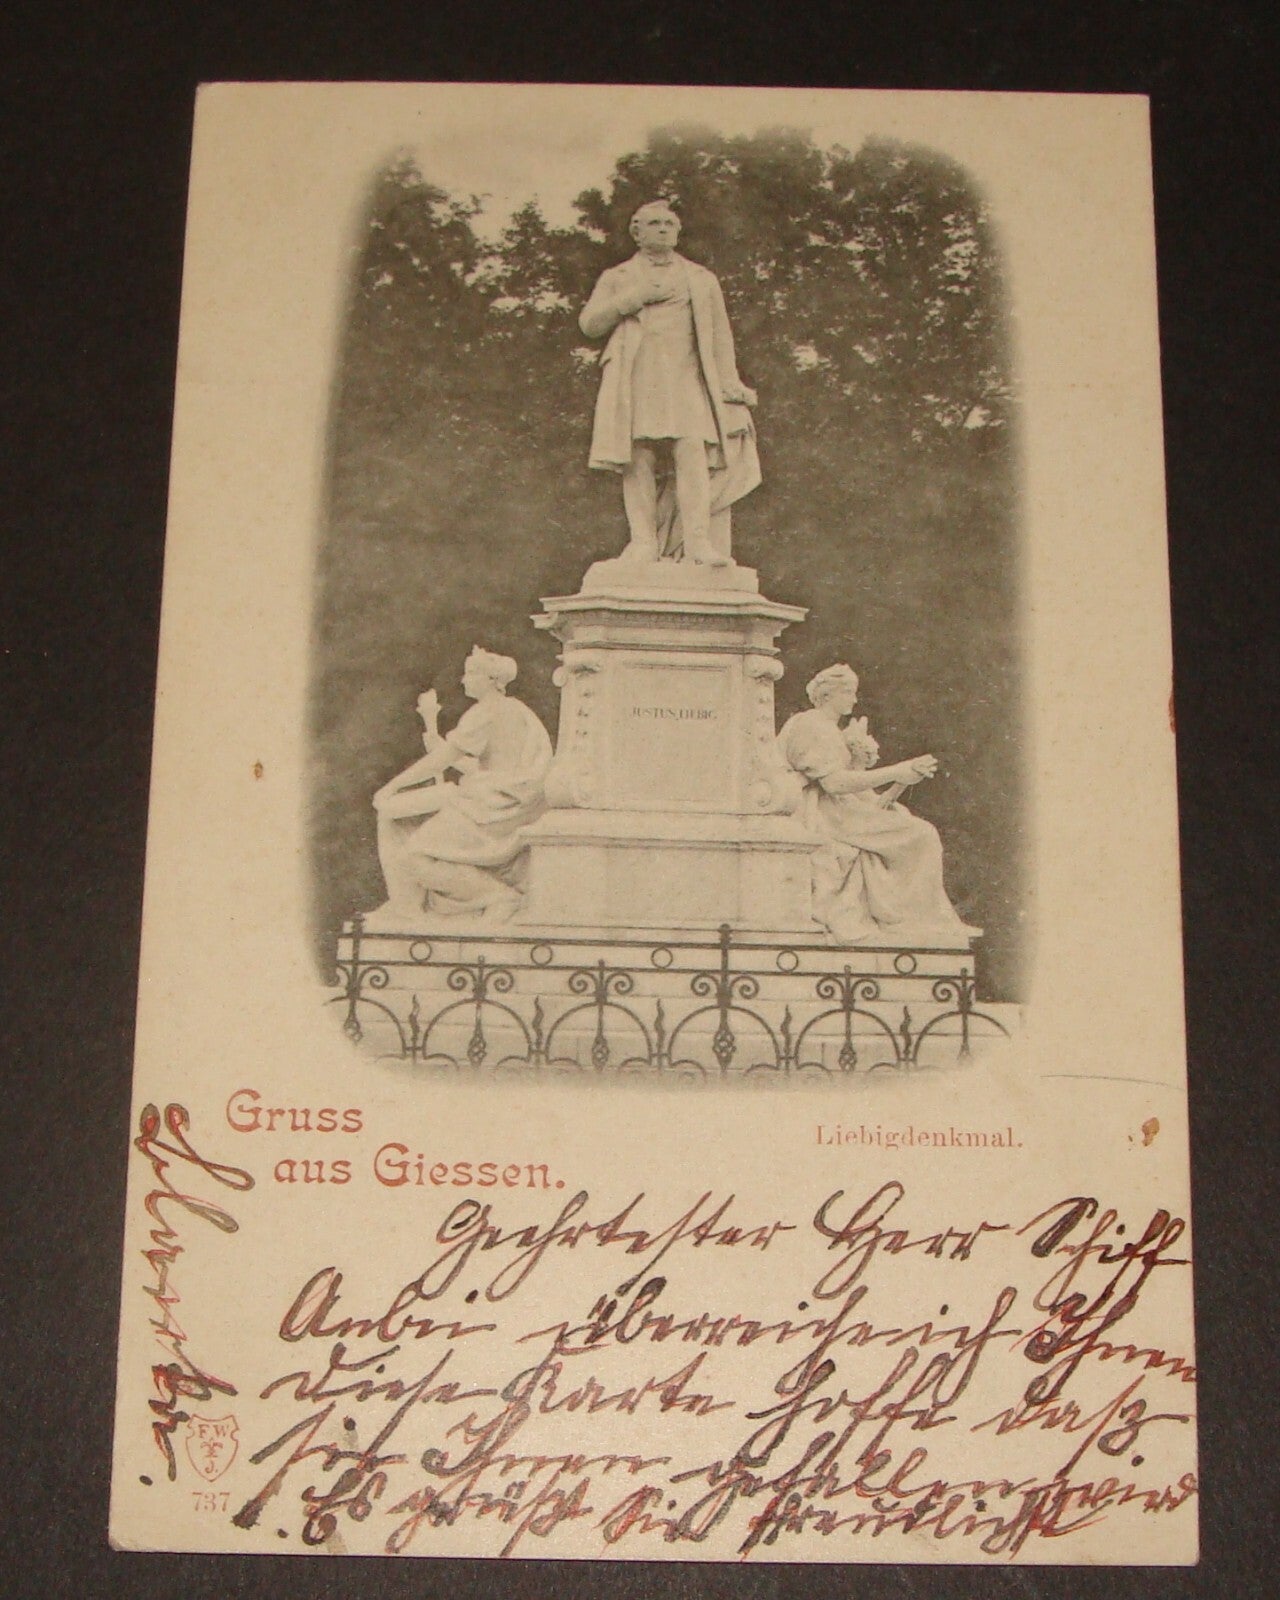 JUSTUS LIEBIG
Gruss
aus Giessen.
Liebigdenkmal.
Geehrtester Herr Schiff
Anbei überreiche ich Ihnen
diese Karte hoffe dasz
sie Ihnen gefallen wird
. Es grüßt Sie freundlichst
F.W
J.
737